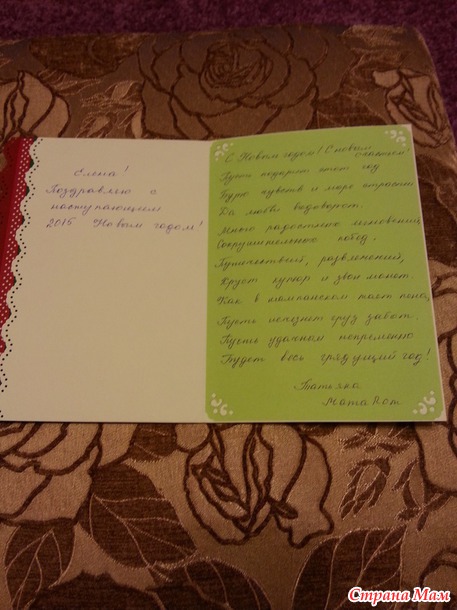 Елена!
Поздравляю с
наступающим
2015 Новым годом!
С Новым годом! С новым
счастьем!
Пусть подарит этот год
Бурю чувств и море страсти
Да любви водоворот.
Много радостных мгновений,
Сокрушительных побед,
Путешествий, развлечений,
Хруст купюр и звон монет.
Как в шампанском тает пена,
Пусть исчезнет груз забот.
Пусть удачным непременно
Будет весь грядущий год!
Татьяна
МатаRom
Страна Мам